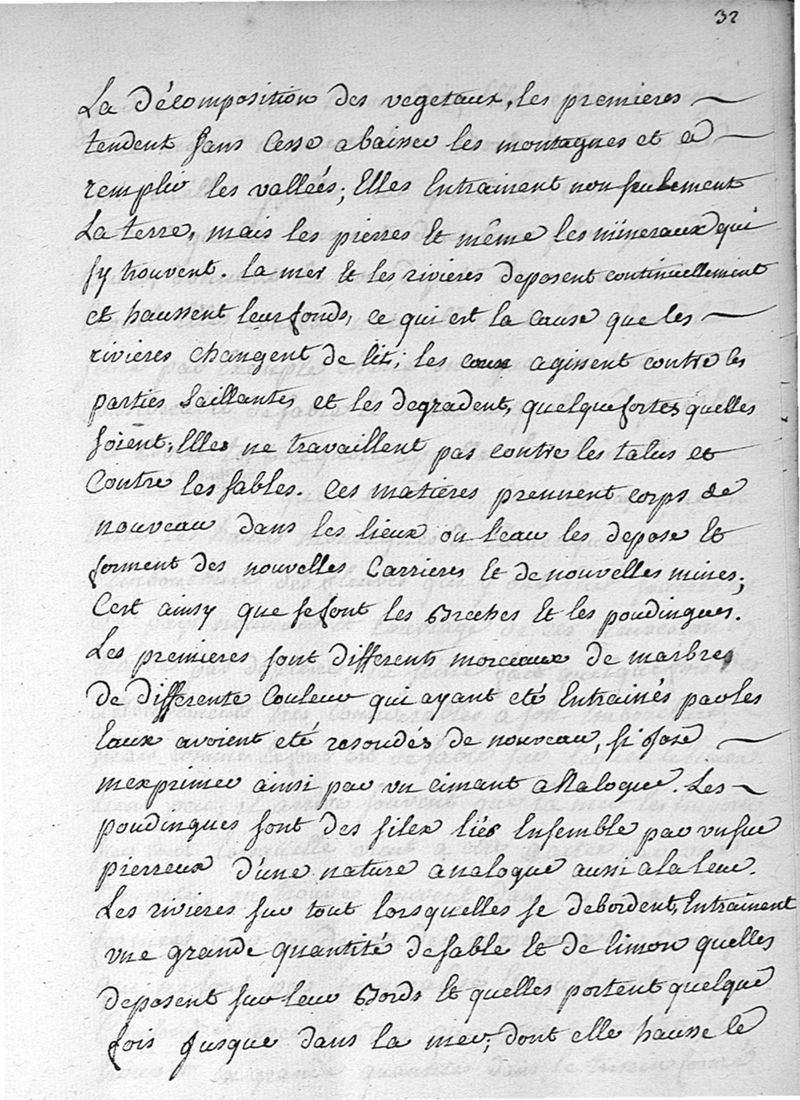 32
La décomposition des vegetaux, les premieres
tendent sans Cesse abaisser les montagnes et a
remplir les vallées; Elles Entrainent non seulement
La terre, mais les pierres Et même les mineraux qui
sy trouvent. La mer Et les rivieres deposent continuellement
et haussent leur fonds, ce qui est la cause que les
rivieres changent de lit; les eaux agissent contre les
parties Saillantes et les degradent, quelque fortes quelles
soient, Elles ne travaillent pas contre les talus et
Contre les sables. Ces matieres prennent corps de
nouveau dans les lieux ou leau les depose Et
forment des nouvelles Carrieres Et de nouvelles mines;
Cest ainsy que se font les Breches Et les poudingues.
Les premieres sont differents morceaux de marbres
de differente Couleur qui ayant eté Entrainés par les
Eaux avoient eté resoudés de nouveau, si jose
mexprimer ainsi par un cimant analogue. Les
poudingues sont des silex liés Ensemble par un suc
pierreux d'une nature analogue aussi a la leur.
Les rivieres sur tout lorsquelles se debordent, Entrainent
une grande quantité de sable Et de limon quelles
deposent sur leur Bords Et quelles portent quelque
fois jusque dans la mer; dont elle hausse le